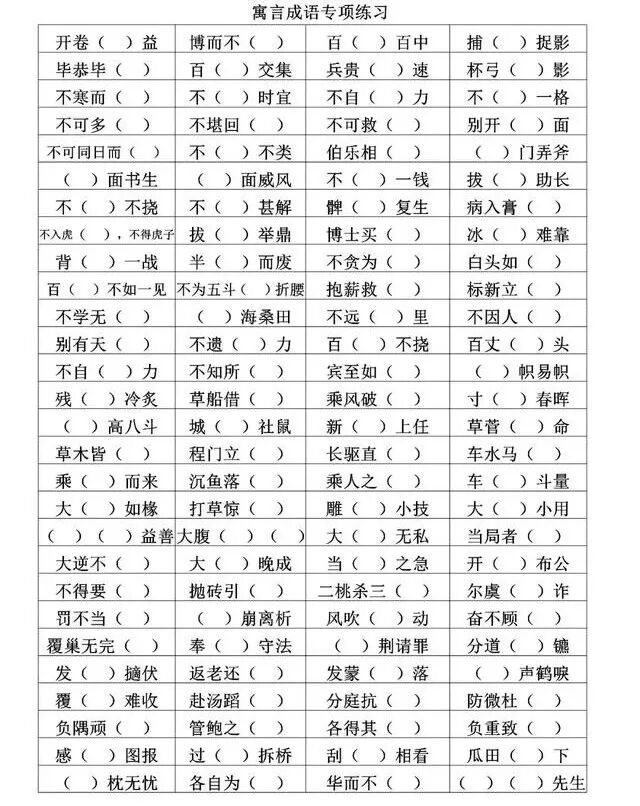 寓言成语专项练习
开卷（ ）益 博而不（ ） 百（ ）百中 捕（ ）捉影
毕恭毕（ ） 百（ ）交集 兵贵（ ）速 杯弓（ ）影
不寒而（ ） 不（ ）时宜 不自（ ）力 不（ ）一格
不可多（ ） 不堪回（ ） 不可救（ ） 别开（ ）面
不可同日而（ ） 不（ ）不类 伯乐相（ ） （ ）门弄斧
（ ）面书生 （ ）面威风 不（ ）一钱 拔（ ）助长
不（ ）不挠 不（ ）甚解 髀（ ）复生 病入膏（ ）
不入虎（ ），不得虎子 拔（ ）举鼎 博士买（ ） 冰（ ）难靠
背（ ）一战 半（ ）而废 不贪为（ ） 白头如（ ）
百（ ）不如一见 不为五斗（ ）折腰 抱薪救（ ） 标新立（ ）
不学无（ ） （ ）海桑田 不远（ ）里 不因人（ ）
别有天（ ） 不遗（ ）力 百（ ）不挠 百丈（ ）头
不自（ ）力 不知所（ ） 宾至如（ ） （ ）帜易帜
残（ ）冷炙 草船借（ ） 乘风破（ ） 寸（ ）春晖
（ ）高八斗 城（ ）社鼠 新（ ）上任 草菅（ ）命
草木皆（ ） 程门立（ ） 长驱直（ ） 车水马（ ）
乘（ ）而来 沉鱼落（ ） 乘人之（ ） 车（ ）斗量
大（ ）如椽 打草惊（ ） 雕（ ）小技 大（ ）小用
（ ）（ ）益善 大腹（ ）（ ） 大（ ）无私 当局者（ ）
大逆不（ ） 大（ ）晚成 当（ ）之急 开（ ）布公
不得要（ ） 抛砖引（ ） 二桃杀三（ ） 尔虞（ ）诈
罚不当（ ） （ ）崩离析 风吹（ ）动 奋不顾（ ）
覆巢无完（ ） 奉（ ）守法 （ ）荆请罪 分道（ ）镳
发（ ）擿伏 返老还（ ） 发蒙（ ）落 （ ）声鹤唳
覆（ ）难收 赴汤蹈（ ） 分庭抗（ ） 防微杜（ ）
负隅顽（ ） 管鲍之（ ） 各得其（ ） 负重致（ ）
感（ ）图报 过（ ）拆桥 刮（ ）相看 瓜田（ ）下
（ ）枕无忧 各自为（ ） 华而不（ ） （ ）（ ）先生